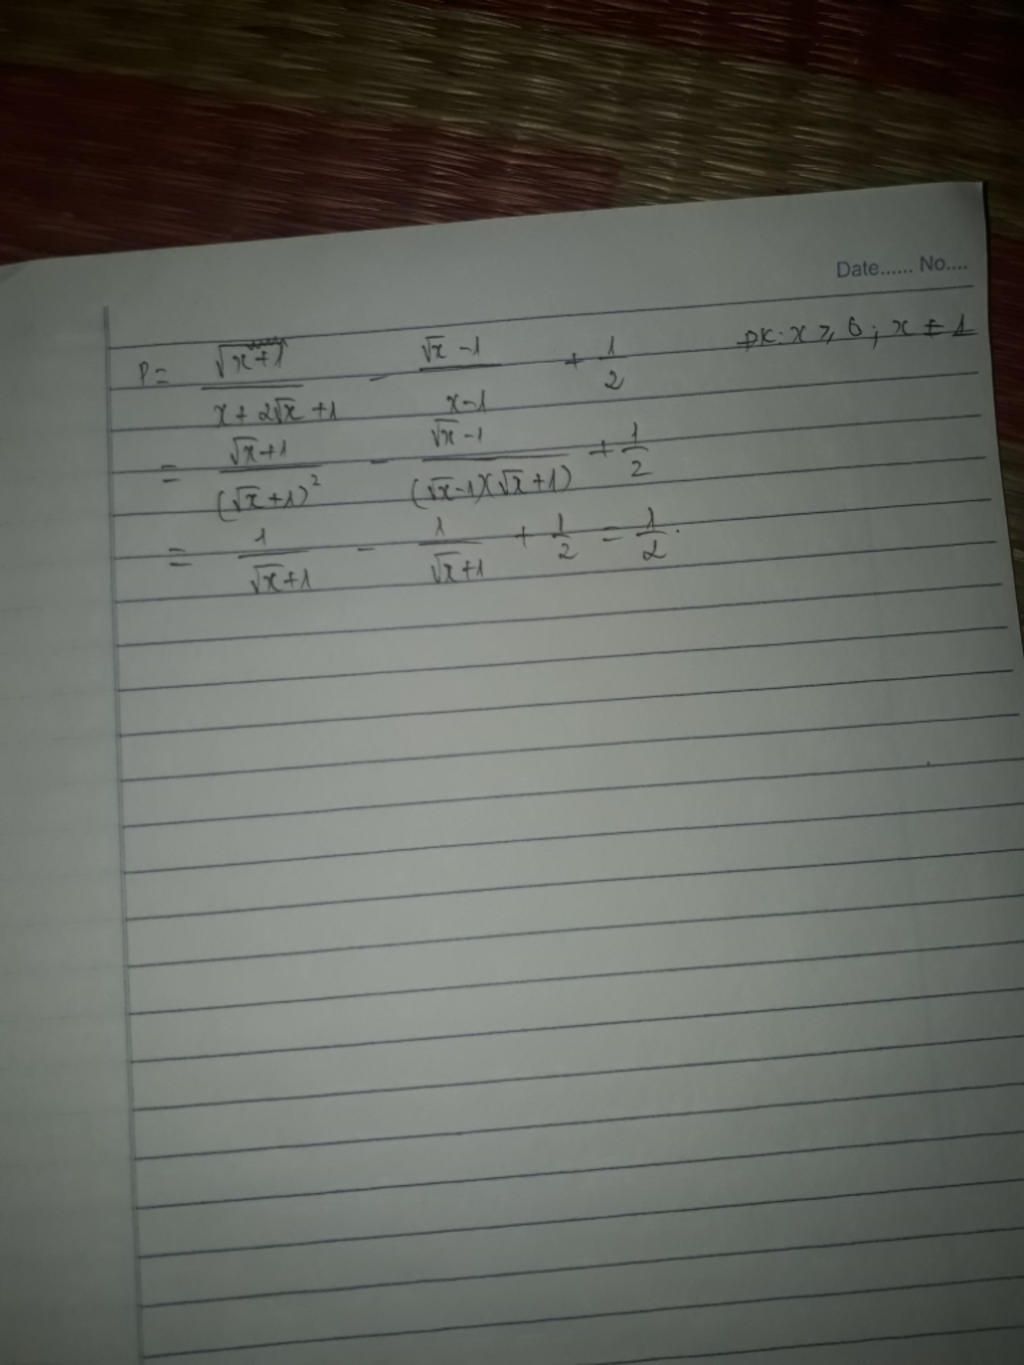 Date...... No....
P = \frac{\sqrt{x+1}}{x+2\sqrt{x}+1} - \frac{\sqrt{x}-1}{x-1} + \frac{1}{2} ĐK: x ≥ 0; x ≠ 1
= \frac{\sqrt{x}+1}{(\sqrt{x}+1)^2} - \frac{\sqrt{x}-1}{(\sqrt{x}-1)(\sqrt{x}+1)} + \frac{1}{2}
= \frac{1}{\sqrt{x}+1} - \frac{1}{\sqrt{x}+1} + \frac{1}{2} = \frac{1}{2}.